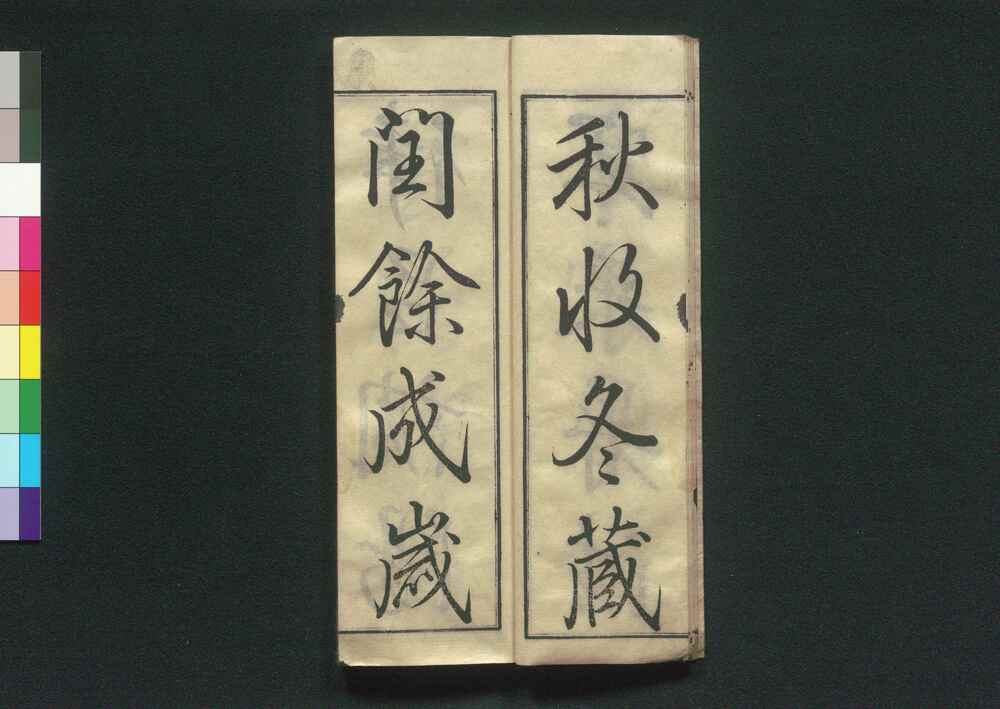 秋收冬蔵
閏餘成嵗